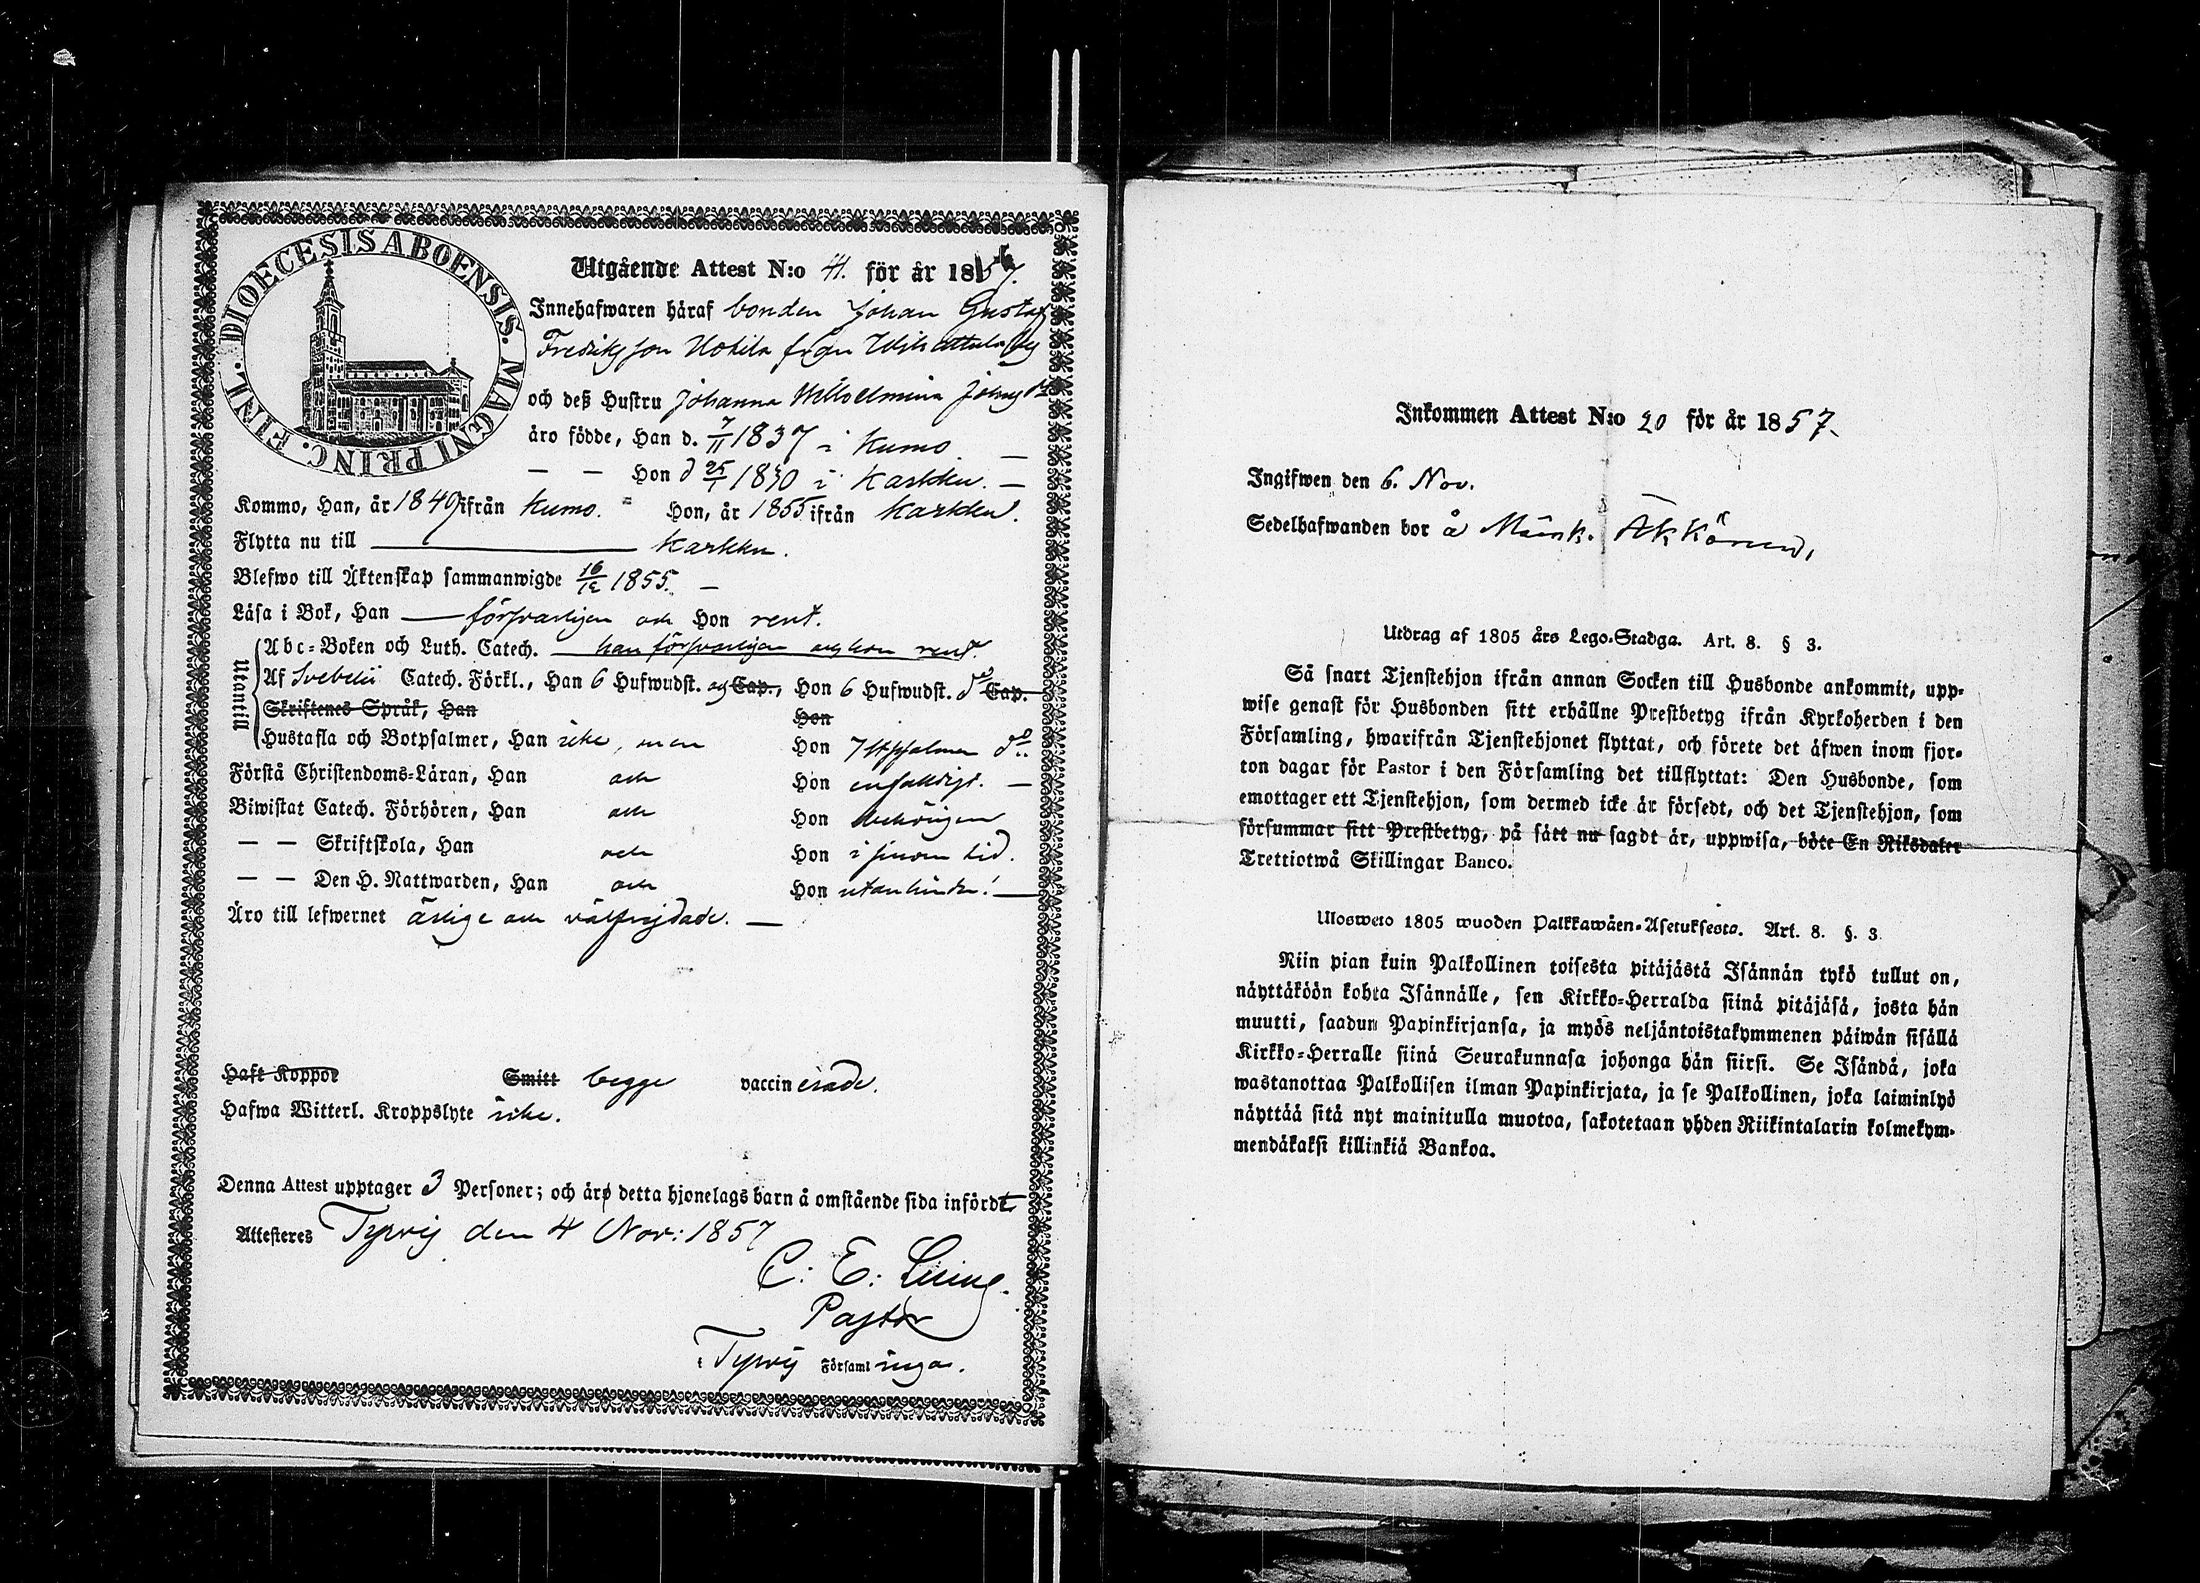 DIOECESIS ABOENSIS. MAGNI PRINC. FINL.
Utgående Attest N:o 41. för år 1857.
Innehafwaren häraf bonden Johan Gustaf
Fredriksson Uotila från Wihattula by
och deß Hustru Johanna Wilhelmina Johansdr
äro födde, Han d. 7/11 1837 i Kumo. —
— — Hon d 25/1 1830 i Karkku. —
Kommo, Han, år 1849 ifrån Kumo. Hon, år 1855 ifrån Karkku.
Flytta nu till — Karkku.
Blefwo till Äktenskap sammanwigde 16/12 1855. —
Läsa i Bok, Han — försvarligen och Hon rent.
Utantill
Abc-Boken och Luth. Catech. — han försvarligen och hon rent.
Af Svebelii Catech. Förkl., Han 6 Hufwudst. og Cap., Hon 6 Hufwudst. do Cap.
Skriftenes Språk, Han Hon
Hustafla och Botpsalmer, Han icke, men Hon 7 psalmer do.
Förstå Christendoms-Läran, Han och Hon enfaldigt. —
Biwistat Catech. Förhören, Han och Hon behörigen
— — Skriftskola, Han och Hon i sinom tid.
— — Den H. Nattwarden, Han och Hon utan hinder. —
Äro till lefwernet ärlige och välfrejdade. —
Haft Koppor Smitt begge vaccinerade.
Hafwa Witterl. Kroppslyte icke.
Denna Attest upptager 3 Personer; och äro detta hjonelags barn å omstående sida infördt.
Attesteres Tyrvis den 4 Nov: 1857
C: E:
Pastor
i Tyrvis Församlingar.
Inkommen Attest N:o 20 för år 1857.
Ingifwen den 6. Nov.
Sedelhafwanden bor å
Utdrag af 1805 års Lego-Stadga. Art. 8. § 3.
Så snart Tjenstehjon ifrån annan Socken till Husbonde ankommit, upp-
wise genast för Husbonden sitt erhållne Prestbetyg ifrån Kyrkoherden i den
Församling, hwarifrån Tjenstehjonet flyttat, och förete det äfwen inom fjor-
ton dagar för Pastor i den Församling det tillflyttat: Den Husbonde, som
emottager ett Tjenstehjon, som dermed icke är försedt, och det Tjenstehjon, som
försummar sitt Prestbetyg, på sätt nu sagdt är, uppwisa, böte En Riksdaler
Trettiotwå Skillingar Banco.
Ulosweto 1805 wuoden Palkkawäen-Asetuksesta. Art. 8. §. 3
Niin pian kuin Palkollinen toisesta pitäjästä Isännän tykö tullut on,
näyttäköön kohta Isännälle, sen Kirkko-Herralda siinä pitäjäsä, josta hän
muutti, saadun Papinkirjansa, ja myös neljäntoistakymmenen päiwän sisällä
Kirkko-Herralle siinä Seurakunnasa johonga hän siirsi. Se Isändä, joka
wastanottaa Palkollisen ilman Papinkirjata, ja se Palkollinen, joka laiminlyö
näyttää sitä nyt mainitulla muotoa, sakotetaan yhden Riikintalarin kolmekym-
mendäkaksi killinkiä Bankoa.